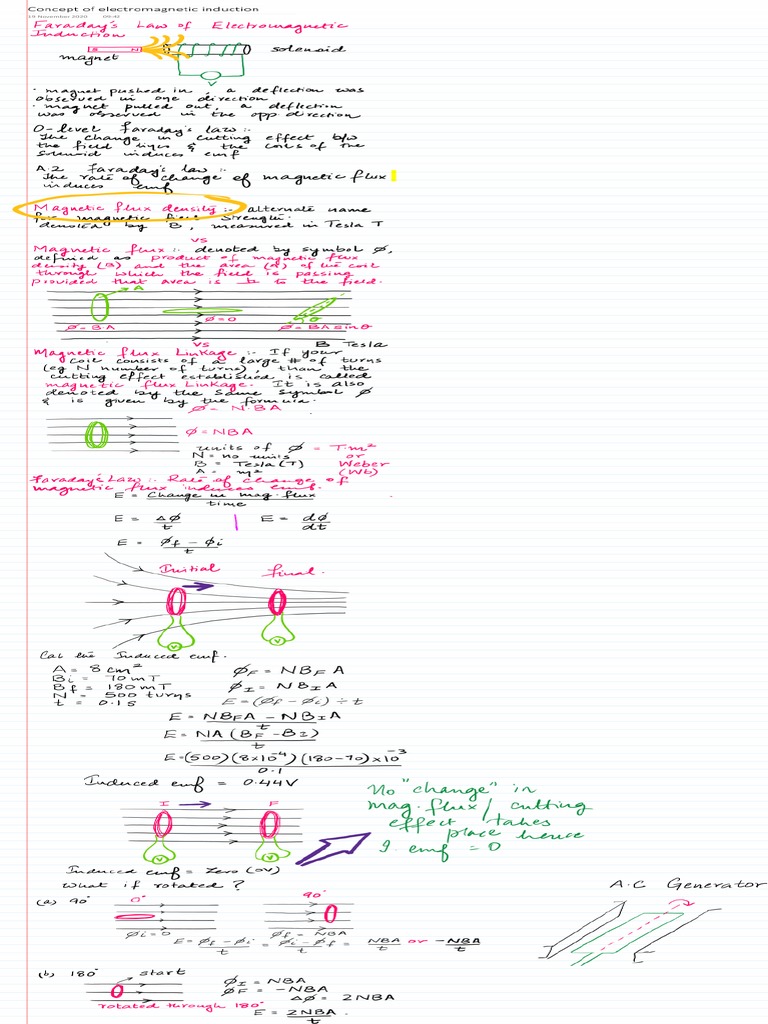 Concept of electromagnetic induction
19 November 2020 09:42
Faraday's Law of Electromagnetic
Induction
S N
solenoid
magnet
V
• magnet pushed in, a deflection was
observed in one direction
• magnet pulled out, a deflection
was observed in the opp. direction
O-level Faraday's law :-
The change in cutting effect b/w
the field lines & the coils of the
solenoid induces emf
A.2 Faraday's law :-
The rate of change of magnetic flux
induces emf
Magnetic flux density :- alternate name
for magnetic field strength.
denoted by B, measured in Tesla T
vs
Magnetic flux :- denoted by symbol ϕ,
defined as product of magnetic flux
density (B) and the area (A) of the coil
through which the field is passing
provided that area is ⊥ to the field.
A
ϕ = BA
ϕ = 0
θ
ϕ = BA sin θ
vs
B Tesla
Magnetic flux Linkage :- If your
coil consists of a large # of turns
(eg N number of turns), than the
cutting effect established is called
magnetic flux Linkage. It is also
denoted by the same symbol ϕ
& is given by the formula.
ϕ = N·BA
ϕ = NBA
units of ϕ = T·m² or Weber (Wb)
N = no units
B = Tesla (T)
A = m²
Faraday's Law :- Rate of change of
magnetic flux induces emf.
E = Change in mag. flux / time
E = Δϕ / t | E = dϕ / dt
E = ϕf - ϕi / t
Initial final.
V V
Cal the Induced emf.
A = 8 cm²
Bi = 70 mT
Bf = 180 mT
N = 500 turns
t = 0.1 s
ϕF = NBF A
ϕI = NBI A
E = (ϕf - ϕi) ÷ t
E = NBFA - NBIA / t
E = NA (BF - BI) / t
E = (500)(8×10⁻⁴)(180-70)×10⁻³ / 0.1
Induced emf = 0.44V
I F
V V
No "change" in
mag. flux / cutting
effect takes
place hence
I. emf = 0
Induced emf = Zero (0V)
What if rotated ?
A.C Generator
(a) 90°
0°
90°
ϕi = 0
ϕf = NBA
E = ϕf - ϕi / t = ϕi - ϕf / t = NBA / t or -NBA / t
(b) 180°
start
rotated through 180°
ϕI = NBA
ϕF = -NBA
Δϕ = 2NBA
E = 2NBA / t .